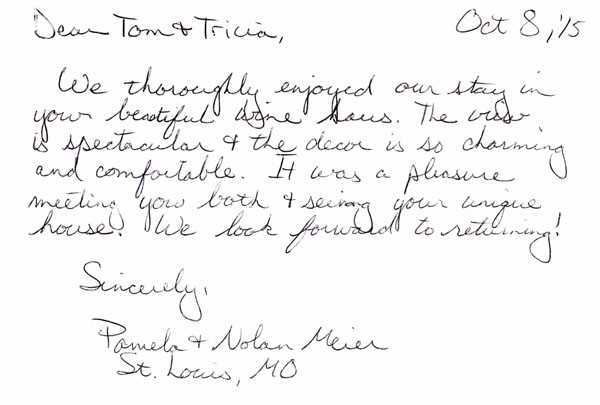 Dear Tom & Tricia, Oct 8, '15
We thoroughly enjoyed our stay in
your beautiful Wine Haus. The view
is spectacular & the decor is so charming
and comfortable. It was a pleasure
meeting you both & seeing your unique
house! We look forward to returning!
Sincerely,
Pamela & Nolan Meier
St. Louis, MO